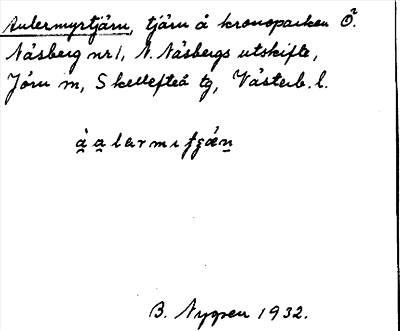 Aulermyrtjärn, tjärn å kronoparken Ö.
Näsberg nr 1, N. Näsbergs utskifte,
Jörn sn, Skellefteå tg, Västerb. l.
B. Nygren 1932.